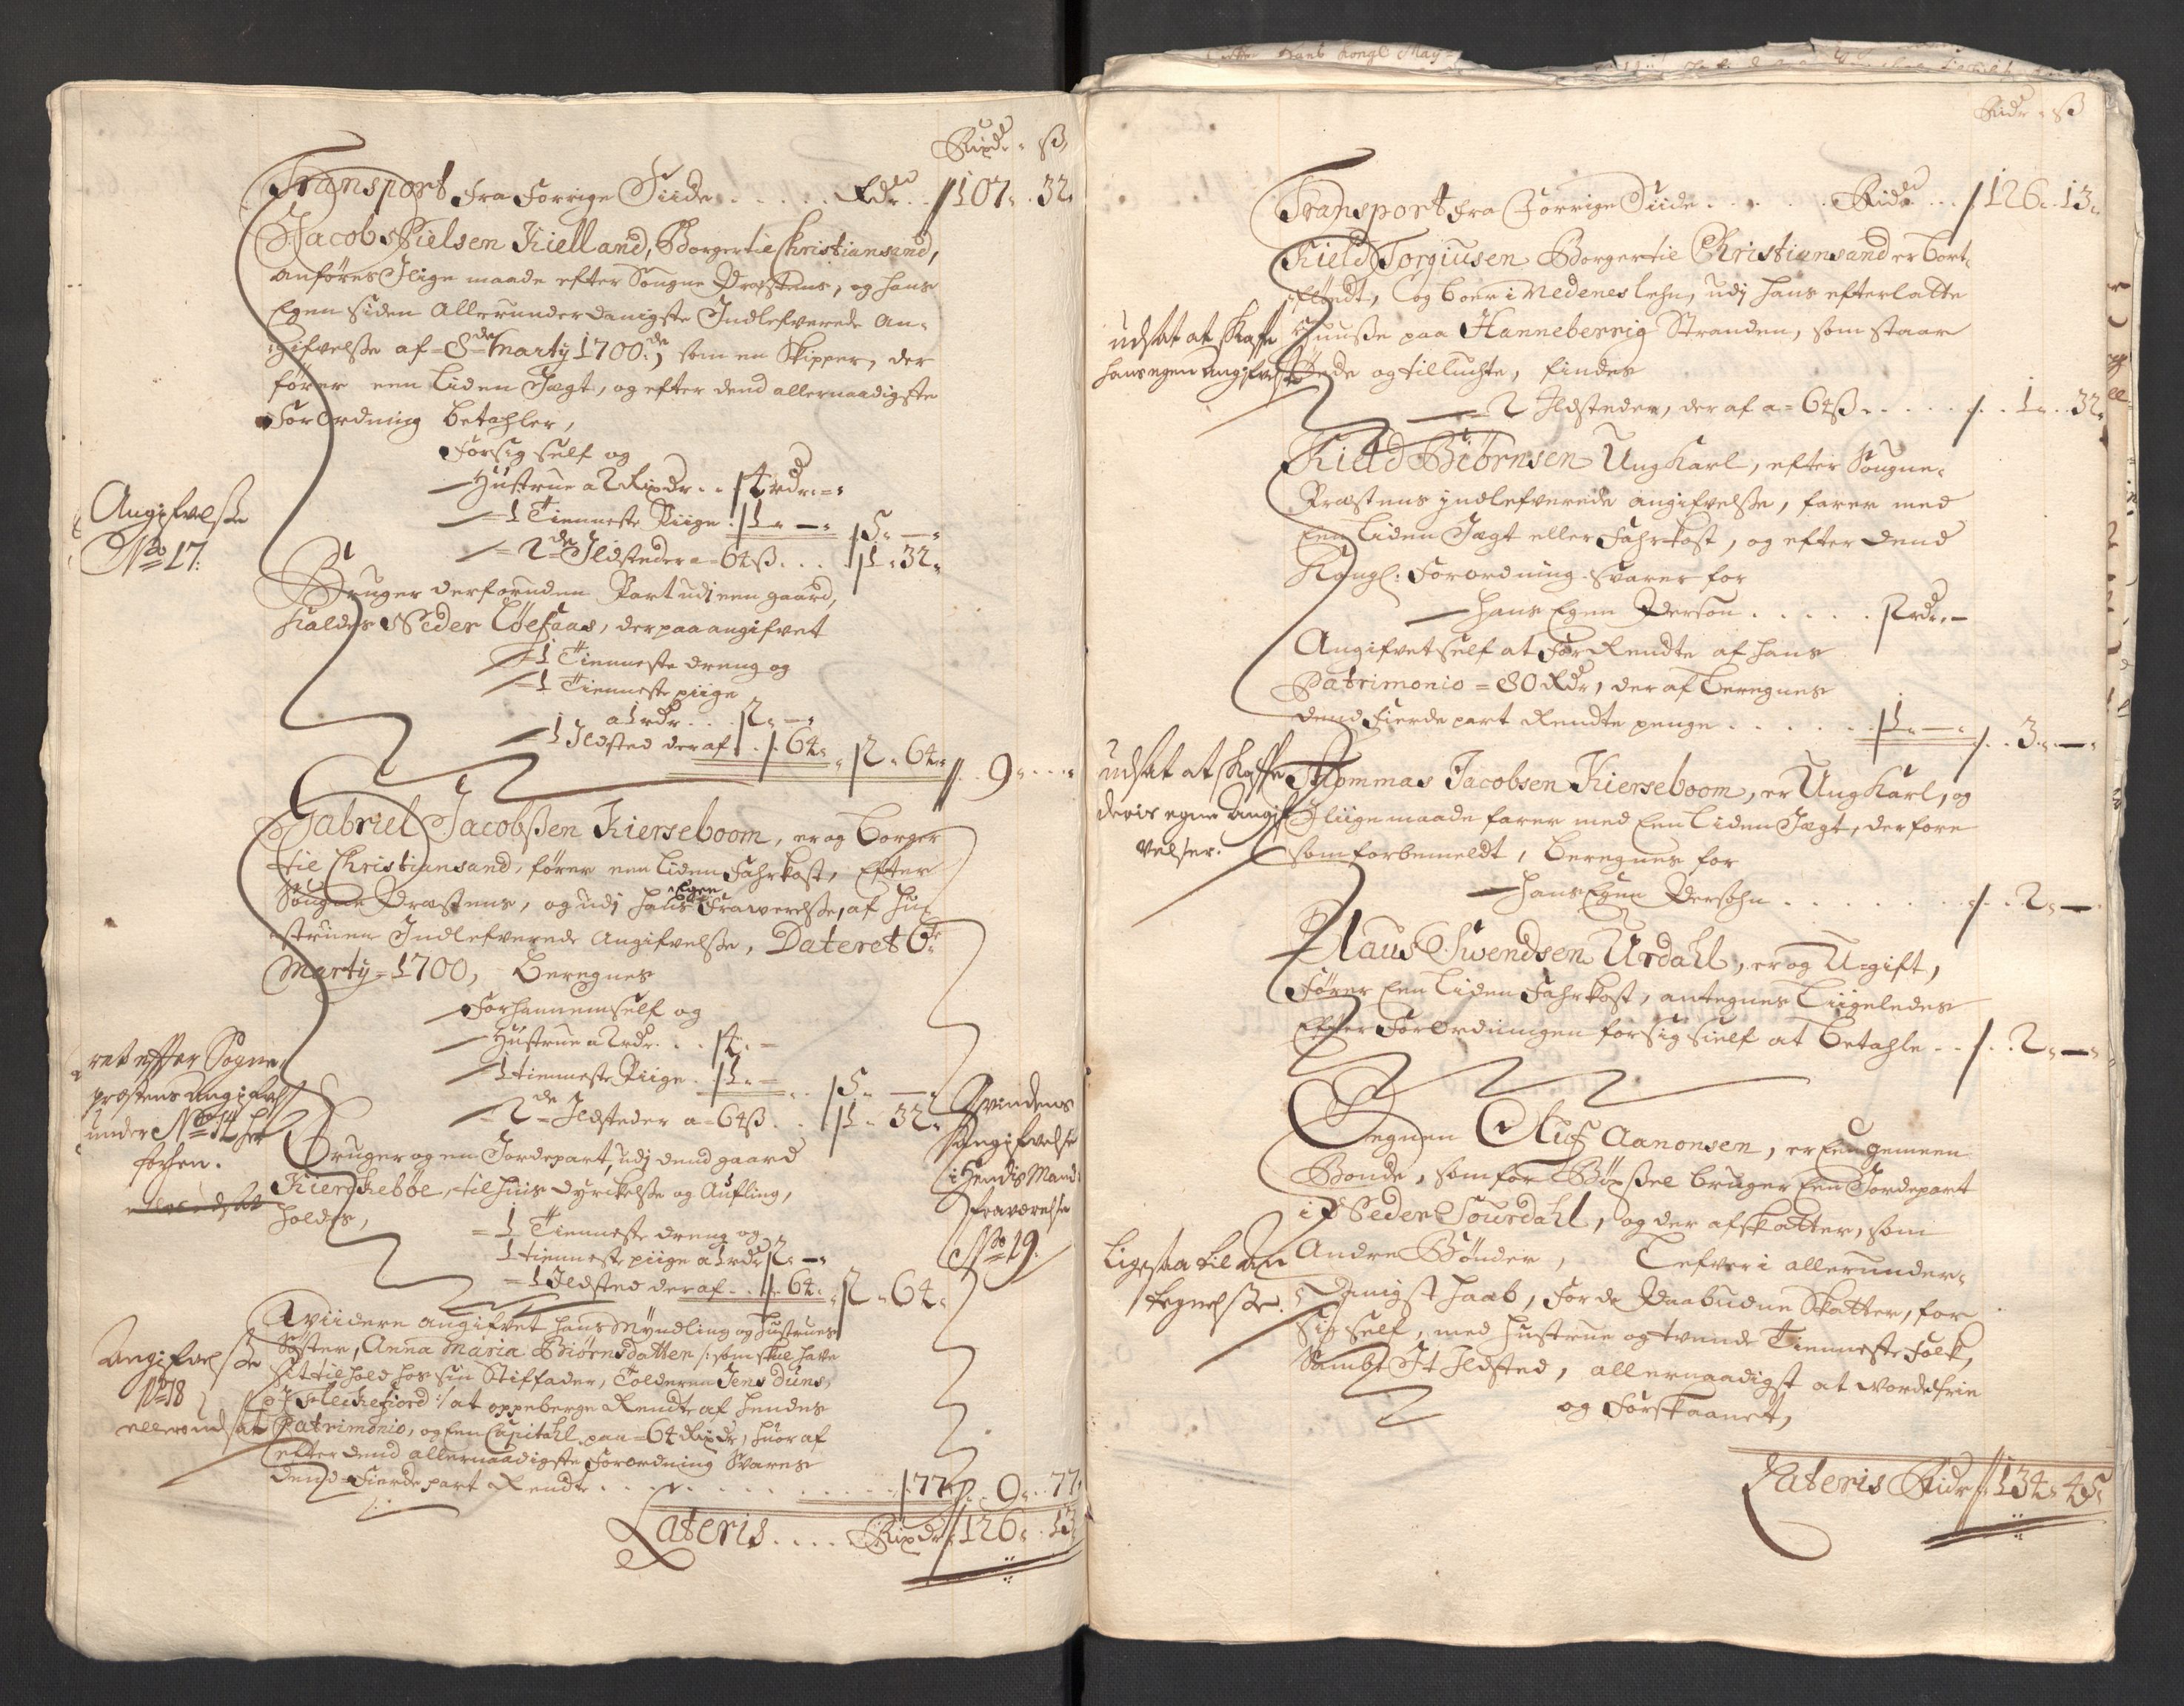 Rixdr. ß
Transport fra Forrige Siide . . . . . Rdr . . 107. 32.
Jacob Nielsen Kielland, Borger til Christiansand,
anføres Jlige maade efter Sougne Præstens, og hans
Egen siden Allerunderdanigste Indlefverede An-
gifvelsse af 8de Marty 1700, som en Skipper, der
fører een liden Jægt, og efter dend allernaadigste
ForOrdning betahler,
For sig self og
Hustrue a 2 Rixdr . . 4 rdr. -
1 Tienneste Piige . 1. - . 5. -
2de Ildsteder a 64 ß . . . 1. 32.
Angifvelsse
No 17.
Bruger derforuden Part udj een gaard,
kaldes Neder Løefaas, der paa angifvet
1 Tienneste dreng og
1 Tienneste piige
a 1 rdr . . . 2. -
1 Ildsted der af . . 64. . 2. 64. . . 9. - -
Gabriel Jacobßen Kierseboom, er og borger
til Christiansand, fører een liden Fahrkost, Efter
Sougne Præstens, og udj hans Egen Frawerelsse, af Hu-
struen Indlefverede Angifvelsse, Dateret 6te
Marty 1700, Beregnes
For hannem self og
Hustrue a 2 rdr . . . 4. -
1 tienneste Piige . 1. - . . 5. -
2de Ildsteder a 64 ß . . 1. 32.
ret efter Sogne
præstens angifvels
under No 14 her
forhen.
Qvindens
Angifvelse
i Hendis Mands
fraværelse
No 19.
Bruger og en Jordepart, udj dend gaard
Kierskebøe, til huis dyrckelsse og Aufling,
holdes,
1 Tienneste dreng og
1 tienneste piige a 1 rdr 2. -
1 Ildsted der af . . 64. . 2. 64.
Angifvelsse
No 18
ellers udsat
Aviidere angifvet hans Myndling og Hustrues
Søster, Anna Maria Biørnsdatter /: som skal have
sit tilhold hos sin Stiffader, Tolderen Jens Duns,
i Fleckefiord :/ at oppeberge Rendte af hendes
Patrimonio, og een Capitahl paa 64 Rixdr, huor af
efter dend allernaadigste Forordning Svares
dend Fierde part Rendte . . . . . . . . 77. . . 0. 77.
Lateris . . . . Rixdr 126. 13.
Ridr. ß
Transport fra Forrige Siide . . . . . Ridr . . . 126. 13.
Kield Torgiusen Borger til Christiansand er bort-
fløndt, og boer i Nedenes lehn, udj hans efterlatte
Huuße paa Hannebervig Stranden, som staar
Øde og tilluchte, findes
2 Ildsteder, der af a 64 ß . . . . . . 1. 32.
udsat at skaffe
hans egen Angifvelße
Kield Biörnsen Ung Karl, efter Sougne-
Præstens jndlefverede angifvelsse, farer med
Een liden Jægt eller Fahrkost, og efter dend
Kongl: Forordning svarer for
hans Egen Person . . . . . 2 rdr. -
Angifvet self at før Rendte af hans
Patrimonio = 80 Rdr, der af beregnes
dend Fierde part Rendte penge . . . . . . 1. - . . 3. -
udsat at skaffe
deris egne Angif
velser.
Thommas Jacobsen Kierseboom, er Ung Karl, og
Jliige maade farer med Een liden Jægt, derfore
som forbemeldt, beregnes for
hans Egen Persohn . . . . . . . . 2. -
Claus Swendsen Urdahl, er og Ugift,
Fører Een liden Fahrkost, antegnes liigeledes
Efter ForOrdningen for sig Sielf at betahle . . . . 2. -
Degnen Oluf Aanonsen, er Een gemeen
Bonde, som for Bøxßel bruger Een Jordepart
i Neder Sourdahl, og der af skatter, som
Andre Bønder, lefver i allerunder-
danigst Haab, for de Paabudne Skatter, for
sig self, med Hustrue og tvende Tienneste Folk,
Sambt Jt Ildsted, allernaadigst at worde frie
og Forskaanet,
Ligesaa til An
tegnelsse.
Lateris Ridr 134. 45.